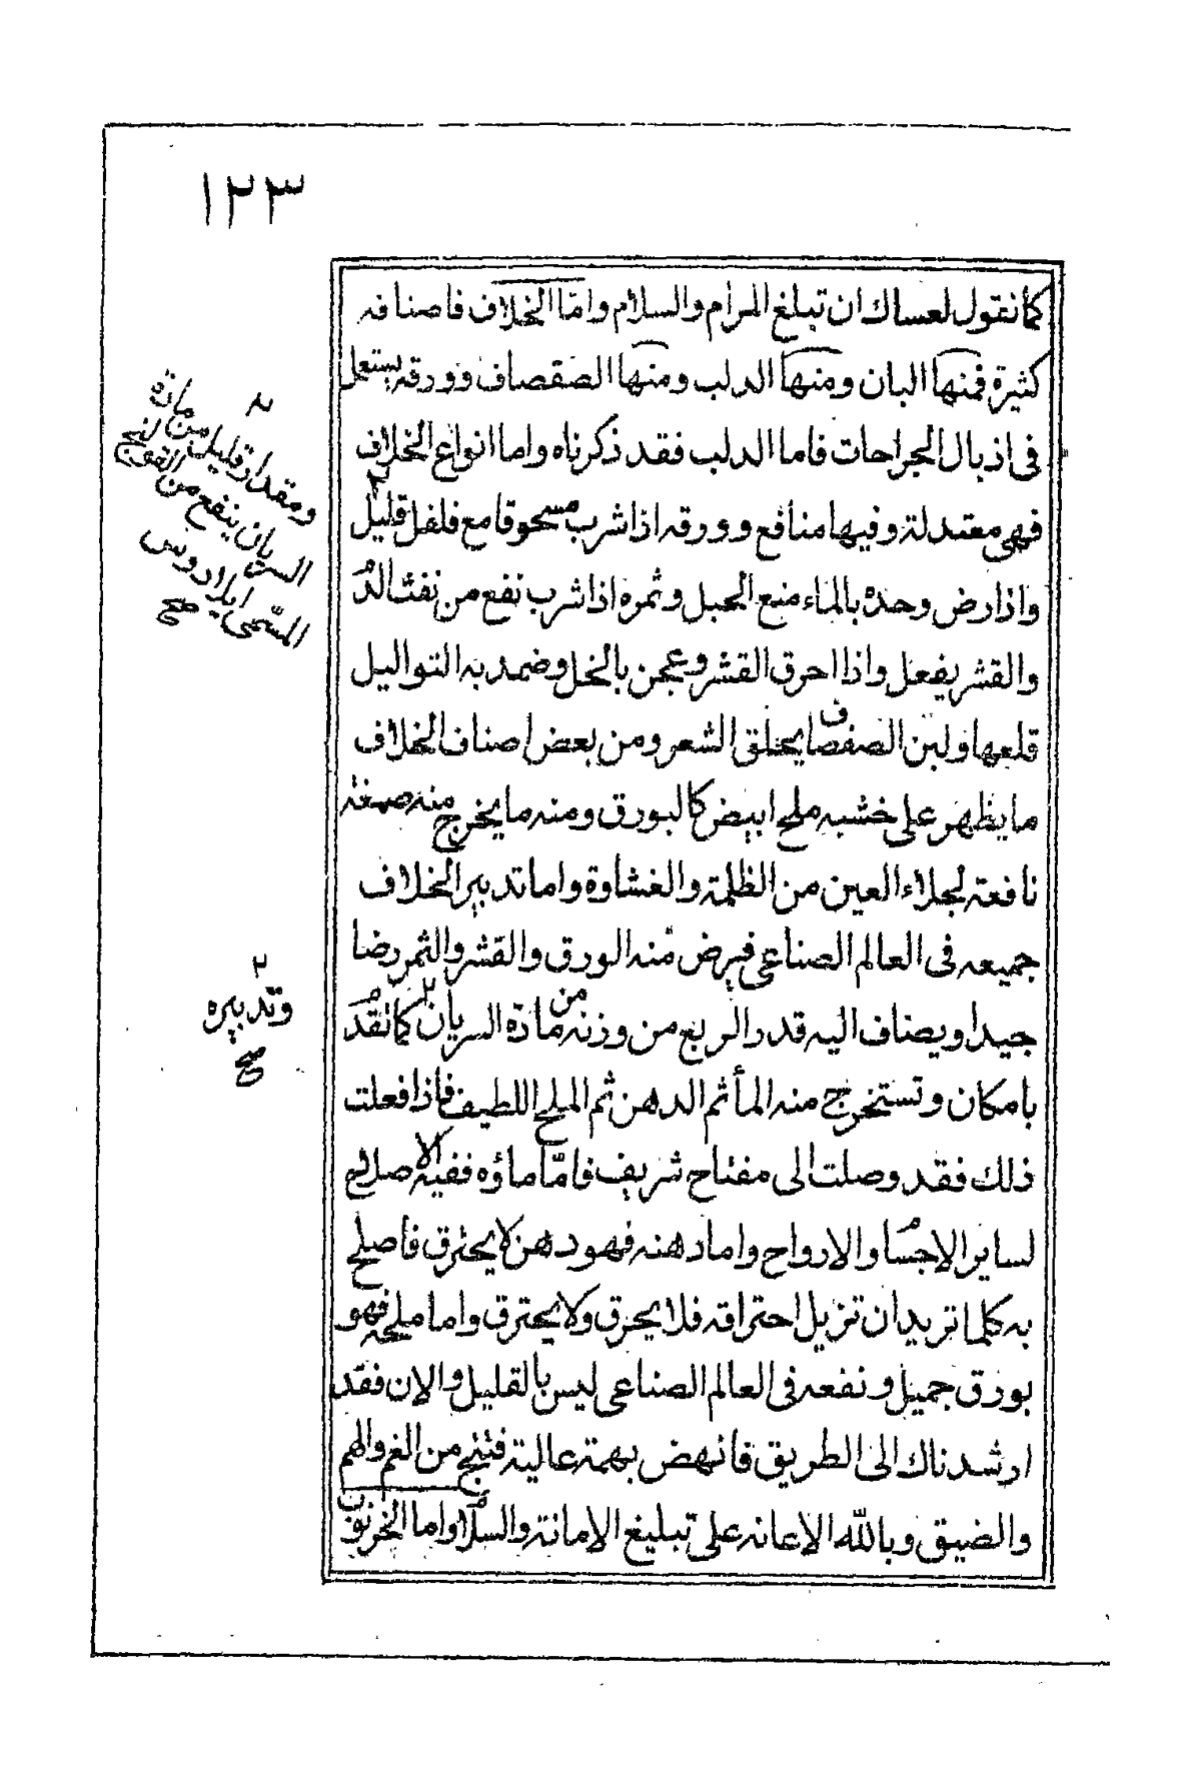 ١٢٣
كما نقول لعساك ان تبلغ المرام والسلام واما الخلاف فاصنافه
كثيرة فمنها البان ومنها الدلب ومنها الصفصاف وورقه يستعمل
فى اذبال الجراحات فاما الدلب فقد ذكرناه واما انواع الخلاف
فهى معتدلة وفيها منافع وورقه اذا شرب مسحوقا مع فلفل قليل
واذا رض وحده بالماء منع الحبل وثمره اذا شرب نفع من نفث الدم
والقشر يفعل واذا احرق القشر وعجن بالخل وضمد به التواليل
قلعها ولبن الصفصاف يحلق الشعر ومن بعض اصناف الخلاف
ما يظهر على خشبه ملح ابيض كالبورق ومنه ما يخرج منه صمغة
نافعة لجلاء العين من الظلمة والغشاوة واما تدبير الخلاف
جميعه فى العالم الصناعى فيرض منه الورق والقشر والثمر رضا
جيدا ويضاف اليه قدر الربع من وزنه من مادة السريان كما نقدم
بامكان وتستخرج منه المأ ثم الدهن ثم الملح اللطيف فاذا فعلت
ذلك فقد وصلت الى مفتاح شريف فامّا ماؤه ففيه الاصلاح
لساير الاجسام والارواح واما دهنه فهو دهن لا يحترق فاصلح
به كلما تريد ان تزيل احتراقه فلا يحرق ولا يحترق واما ملحه فهو
بورق جميل ونفعه فى العالم الصناعى ليس بالقليل والان فقد
ارشدناك الى الطريق فانهض بهمة عالية فتنج من الغم والهم
والضيق وبالله الاعانه على تبليغ الامانة والسلام واما الخرنوب
٢
ومقدار قليل من مادة
السريان ينفع من القولنج
المسّمى ايلاروس
صح
٢
وتدبيره
صح